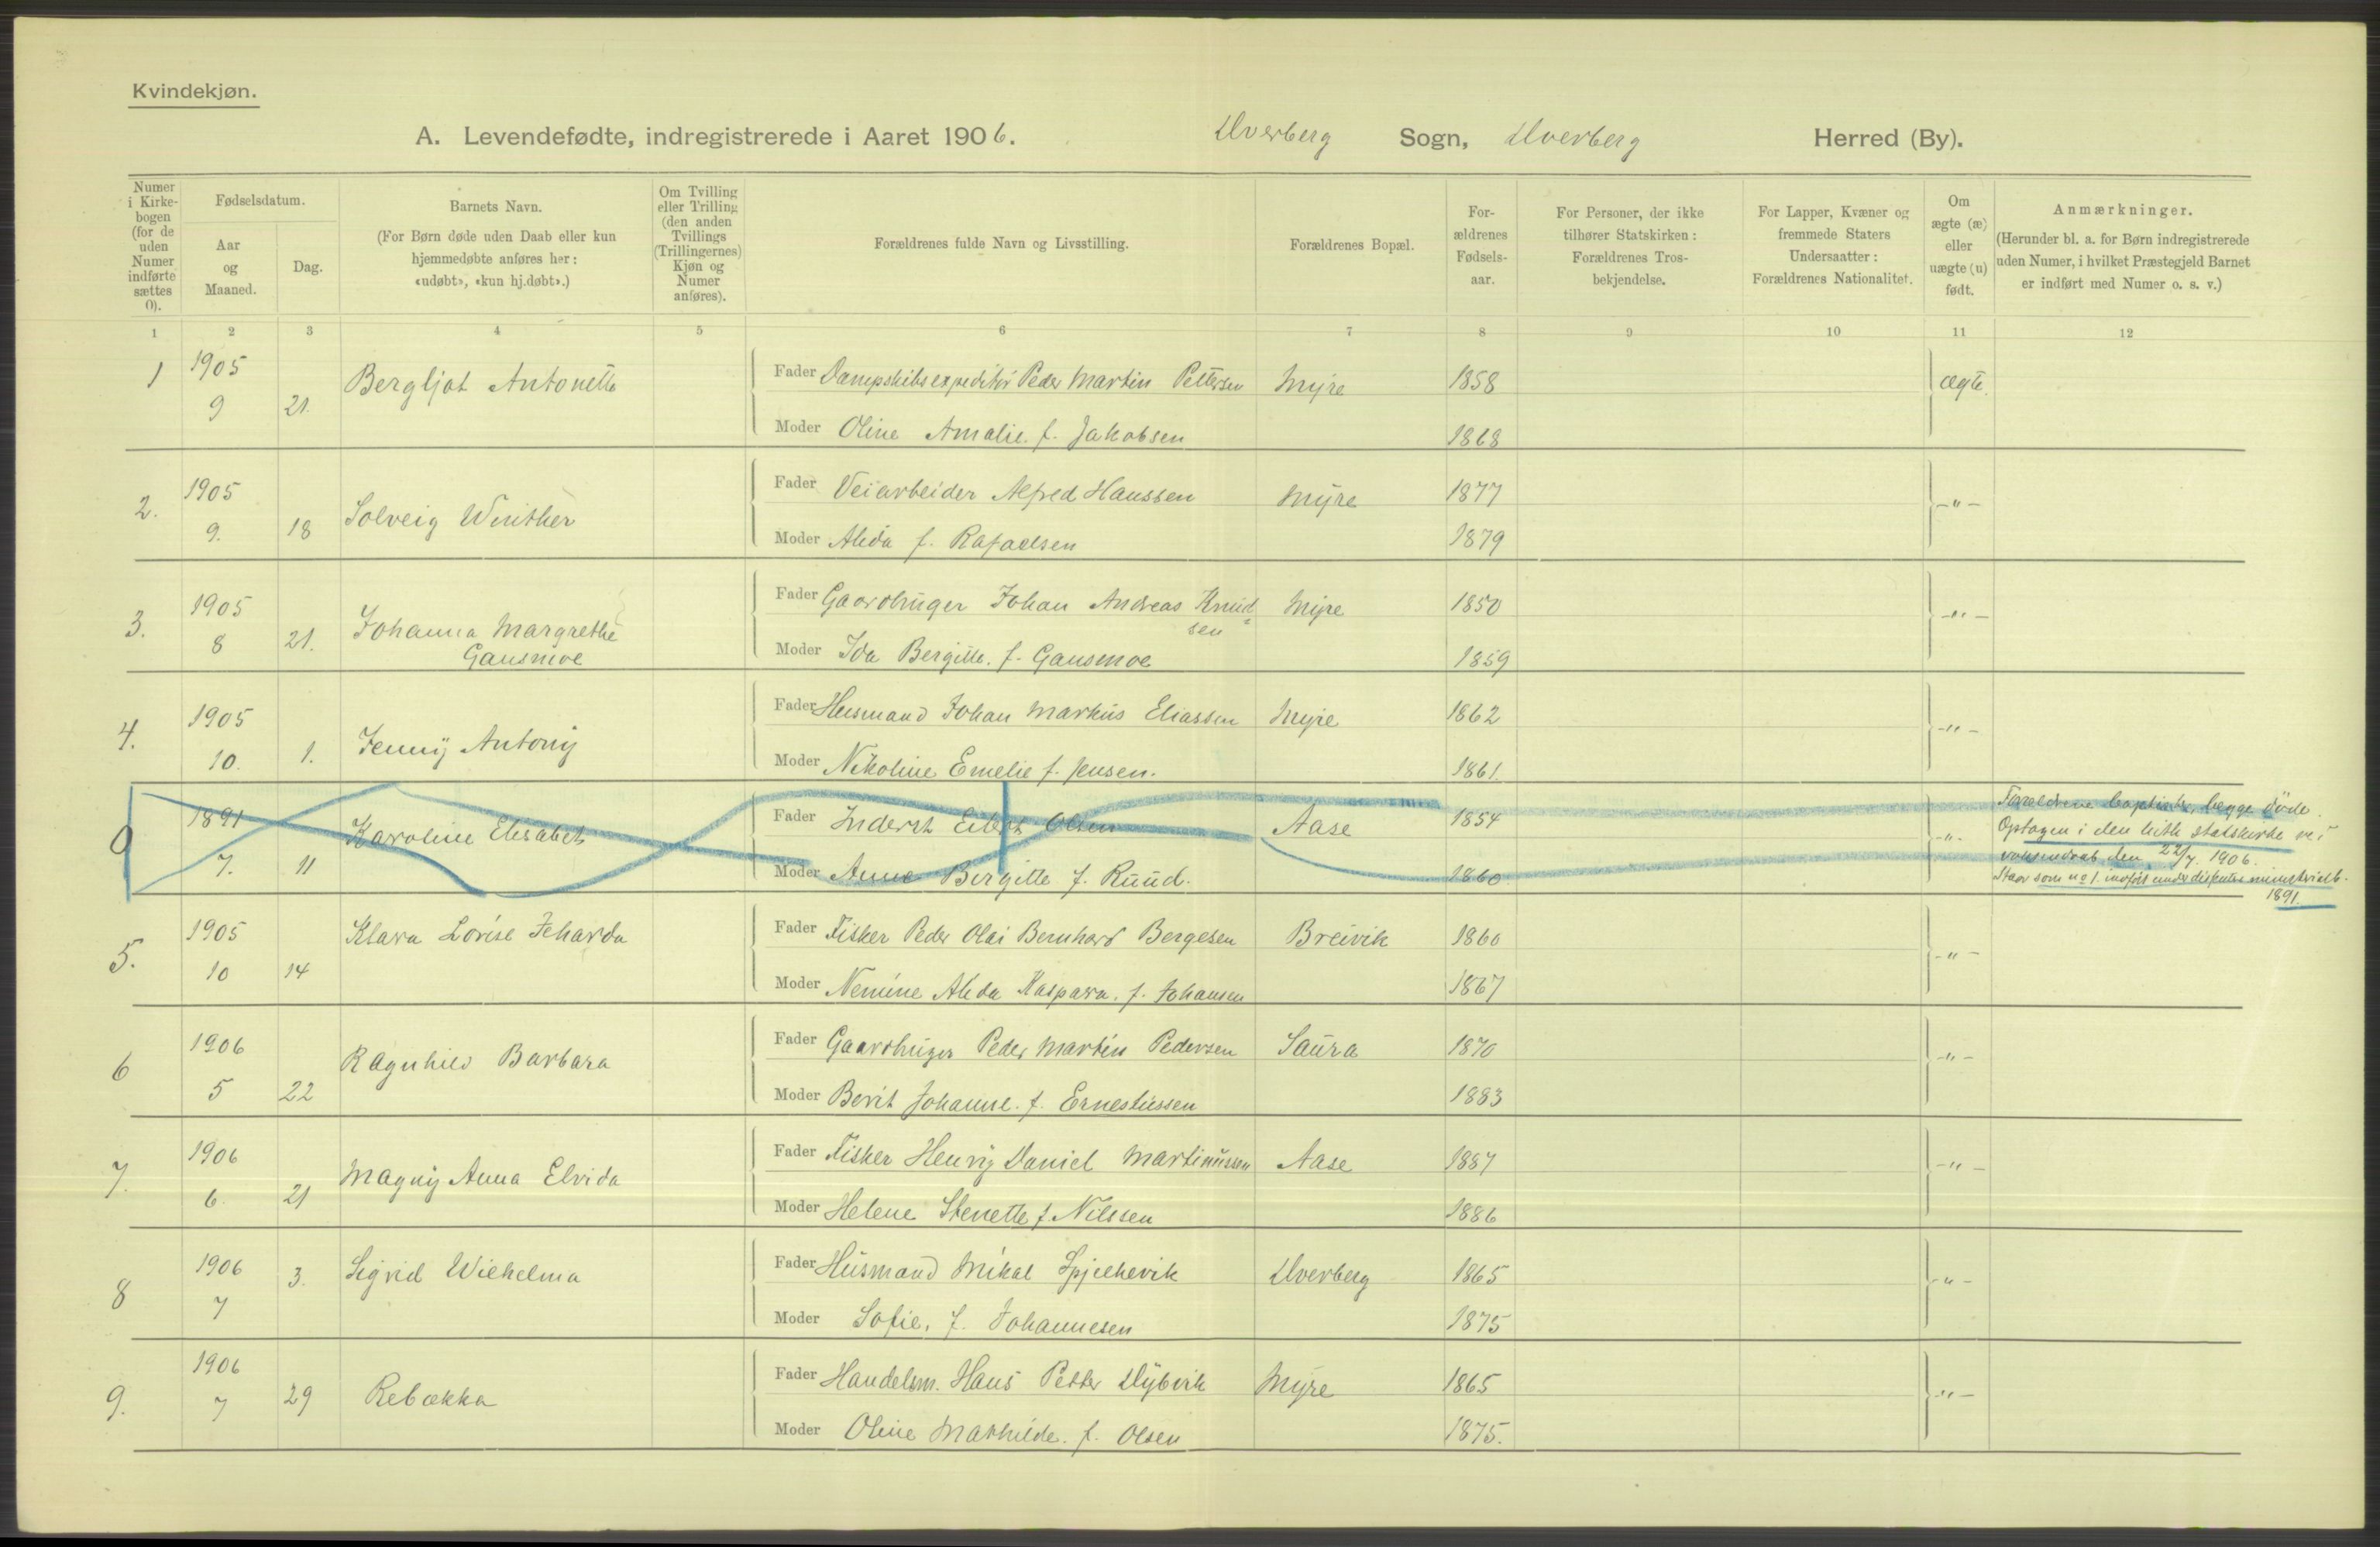 Kvindekjøn.
A. Levendefødte, indregistrerede i Aaret 1906. Dverberg Sogn, Dverberg Herred (By).
Numer i Kirkebogen (for de uden Numer indførte sættes 0).
Fødselsdatum.
Aar og Maaned.
Dag.
Barnets Navn.
(For Børn døde uden Daab eller kun hjemmedøbte anføres her: «udøbt», «kun hj.døbt».)
Om Tvilling eller Trilling (den anden Tvillings (Trillingernes) Kjøn og Numer anføres).
Forældrenes fulde Navn og Livsstilling.
Forældrenes Bopæl.
Forældrenes Fødselsaar.
For Personer, der ikke tilhører Statskirken: Forældrenes Trosbekjendelse.
For Lapper, Kvæner og fremmede Staters Undersaatter: Forældrenes Nationalitet.
Om ægte (æ) eller uægte (u) født.
Anmærkninger.
(Herunder bl. a. for Børn indregistrerede uden Numer, i hvilket Præstegjeld Barnet er indført med Numer o. s. v.)
1 2 3 4 5 6 7 8 9 10 11 12
1 1905 9 21. Bergljot Antonette
Fader Dampskibsexpeditør Peder Martin Pettersen Myre 1858 ægte.
Moder Oline Amalie f. Jakobsen 1868
2. 1905 9. 18 Solveig Winther
Fader Veiarbeider Alfred Hanssen Myre 1877 -"-
Moder Alida f. Rafaelsen 1879
3. 1905 8 21. Johanna Margrethe
Gausmoe
Fader Gaardbruger Johan Andreas Knud=
sen Myre 1850 -"-
Moder Ida Bergitte. f. Gausmoe 1859
4. 1905 10. 1. Jenny Antony
Fader Husmand Johan Markus Eliassen Myre 1862 -"-
Moder Nikoline Emelie f. Jensen. 1861.
0 1891 7. 11 Karoline Elisabet
Fader Inderst Olsen Aase 1854 -"-
Moder Anne Birgitte f. Ruud. 1860
Forældrene baptister, begge døde.
Optagen i den luth statskirke ved
den 22/7. 1906.
Staar som no 1 indført under
1891.
5. 1905 10 14 Klara Lovise Jeharda
Fader Fisker Peder Olai Bernhard Bergesen Breivik 1860 -"-
Moder Nemine Alida Kaspara. f. Johansen 1867
6 1906 5 22 Ragnhild Barbara
Fader Gaardbruger Peder Martin Pedersen Saura 1870 -"-
Moder Berit Johanne. f. Ernestussen 1883
7. 1906 6. 21 Magny Anna Elvida
Fader Fisker Henrig Daniel Martinussen Aase 1887 -"-
Moder Helene Stenette f. Nilssen 1886
8 1906 7 3. Sigrid Wilhelma
Fader Husmand Mikal Spjelkevik Dverberg 1865 -"-
Moder Sofie. f. Johannesen 1875
9. 1906 7 29 Rebækka
Fader Handelsm. Hans Petter Dybvik Myre 1865 -"-
Moder Oline Mathilde. f. Olsen 1875.